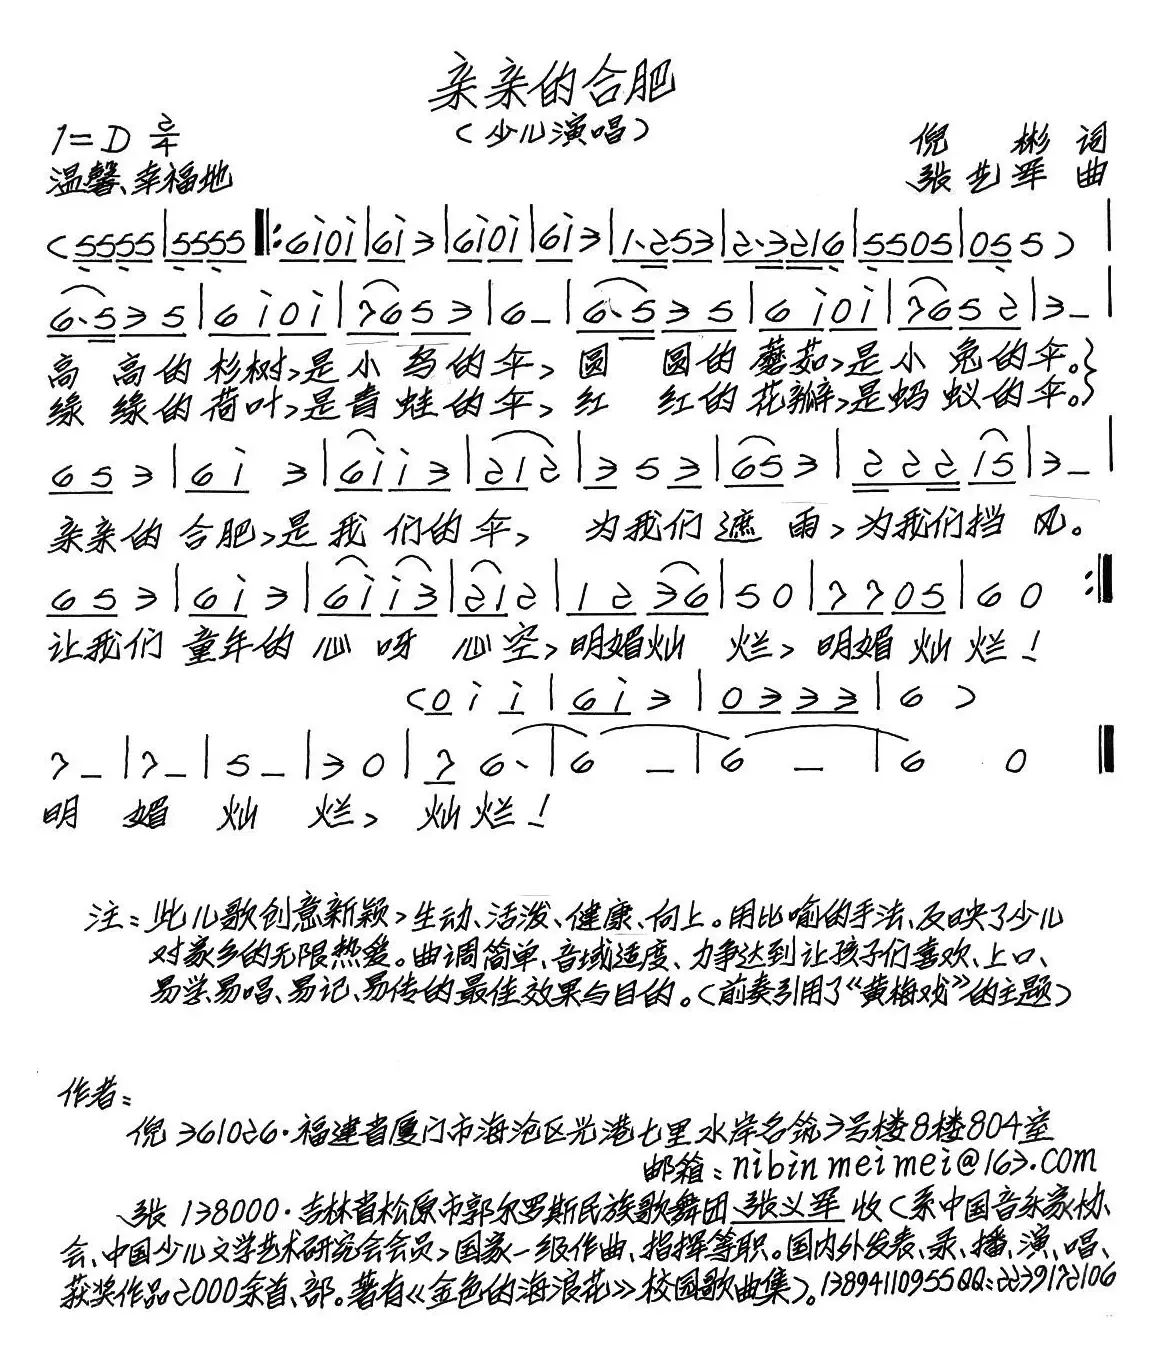 亲亲的合肥
(少儿演唱)
1=D 2/4
倪 彬 词
温馨、幸福地
张艺军 曲
(5555|5555‖:6i0i|6i3|6i0i|6i3|1·253|2·3216|5505|055)|
6·535|6i0i|7653|6-|6·535|6i0i|7652|3-|
高 高的杉树,是小 鸟的伞、圆 圆的蘑菇,是小 兔的伞。}
绿 绿的荷叶,是青 蛙的伞、红 红的花瓣,是蚂 蚁的伞。}
653|6i 3|6ii3|212|353|653|22215|3-|
亲亲的合肥,是我 们的伞, 为我们遮 雨,为我们挡 风。
653|6i3|6ii3|212|1236|50|7705|60:‖
让我们 童年的 心呀 心空,明媚灿 烂,明媚灿烂!
(0ii|6i3|0333|6)
7-|7-|5-|30|76·|6 -|6 -|6 0‖
明 媚 灿 烂,灿烂!
注:此儿歌创意新颖,生动、活泼、健康、向上。用比喻的手法、反映了少儿
对家乡的无限热爱。曲调简单、音域适度、力争达到让孩子们喜欢、上口、
易学易唱、易记、易传的最佳效果与目的。(前奏引用了《黄梅戏》的主题)
作者:
倪 361026·福建省厦门市海沧区兴港七里水岸名筑3号楼8楼804室
邮箱:nibinmeimei@163.com
张 138000·吉林省松原市郭尔罗斯民族歌舞团 张义军 收(系中国音乐家协、
会、中国少儿文学艺术研究会会员,国家一级作曲、指挥等职。国内外发表、录、播、演、唱、
获奖作品2000余首、部。著有《金色的海浪花》校园歌曲集)。13894110955QQ:2239172106